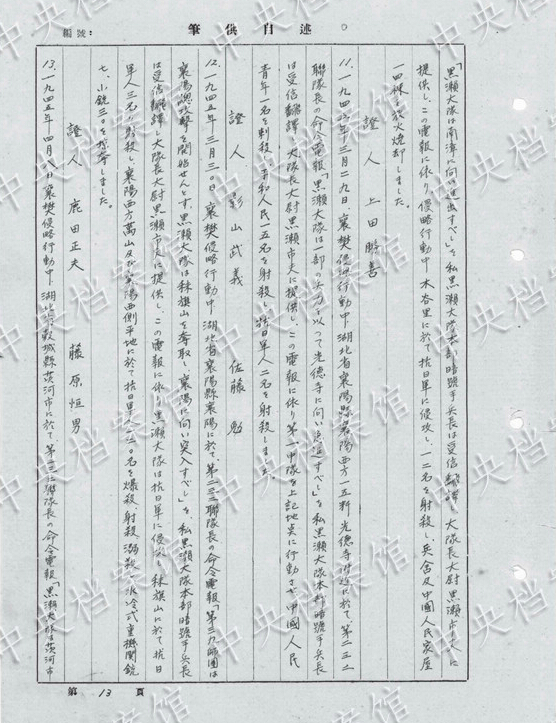 編號：
述自供筆
「黒瀬大隊は南漳に向い進出すべし」を私黒瀬大隊本部暗號手兵長は受信飜譯し大隊長大尉黒瀬市夫に
提供し、この電報に依り、侵略行動中 木杏里に於て抗日軍に侵攻し、一二名を射殺し、兵舎及中國人民家屋
一四棟を放火焼却しました。
證人 上田 善
11. 一九四五年三月二九日、襄樊侵略行動中 湖北省襄陽縣襄陽西方一五粁光徳寺附近に於て、第二三二
聯隊長の命令電報「黒瀬大隊は一部の兵力を以って光徳寺に向い前進すべし」を私黒瀬大隊本部暗號手兵長
は受信飜譯し大隊長大尉黒瀬市夫に提供し、この電報に依り第一中隊を上記地点に行動させ中國人民
青年一名を刺殺し、平和人民一五名を射殺し、抗日軍人二名を射殺しました。
證人 影山武義 佐藤 勉
12. 一九四五年三月三〇日、襄樊侵略行動中 湖北省襄陽縣襄陽に於て、第二三二聯隊長の命令電報「第三九師團は
襄陽總攻撃を開始せんとす、黒瀬大隊は秣旗山を奪取し、襄陽に向い突入すべし」を、私黒瀬大隊本部暗號手兵長
は受信飜譯し大隊長大尉黒瀬市夫に提供し、この電報に依り黒瀬大隊は抗日軍に侵攻し秣旗山に於て抗日
軍人三名を射殺し、襄陽西方萬山及び襄陽西側平地に於て抗日軍人二〇名を爆殺、射殺、溺殺し水冷式重機関銃
七、小銃三〇を掠奪しました。
證人 鹿田正夫 藤原恒男
13. 一九四五年四月八日、襄樊侵略行動中 湖北省穀城縣茨河市に於て、第二三二聯隊長の命令電報「黒瀬大隊は茨河市
第 13 頁
中央档案馆